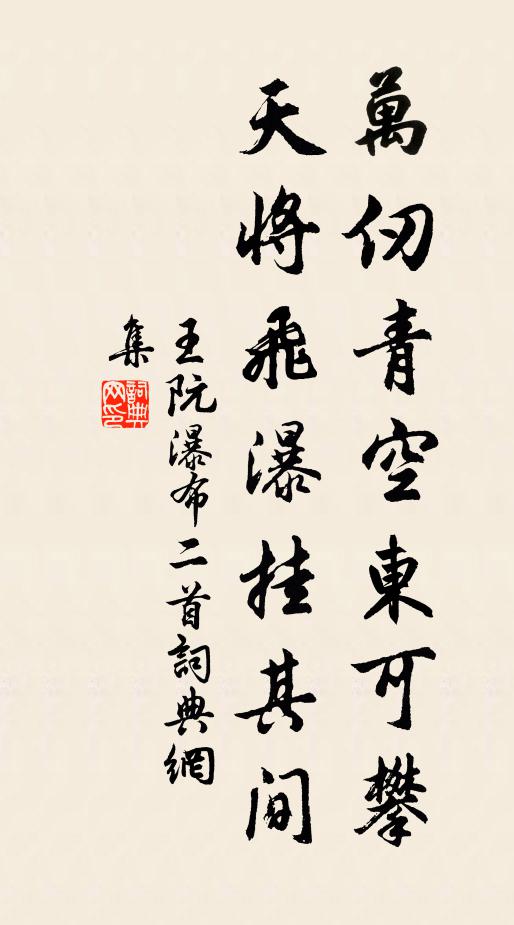 萬仞青空東可攀
天將飛瀑挂其间
王阮瀑布二首詞典網
集
詞典
网印